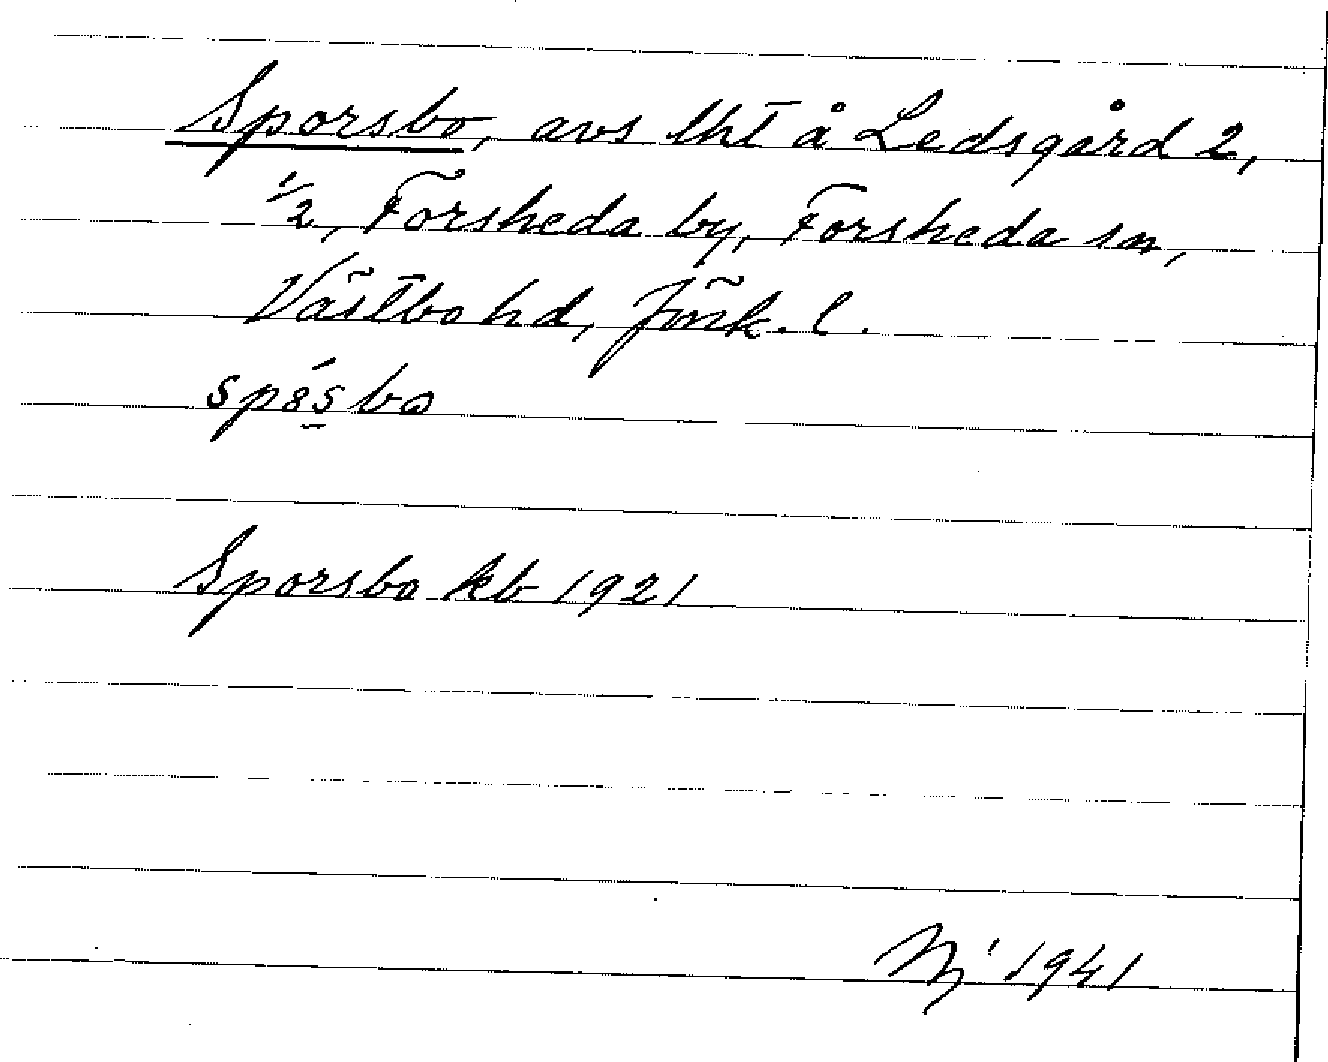 Sporsbo, avs lht å Ledsgård 2,
1/2, Forsheda by, Forsheda sn,
Västbo hd, Jönk. l.
Sporsbo kb 1921
1941